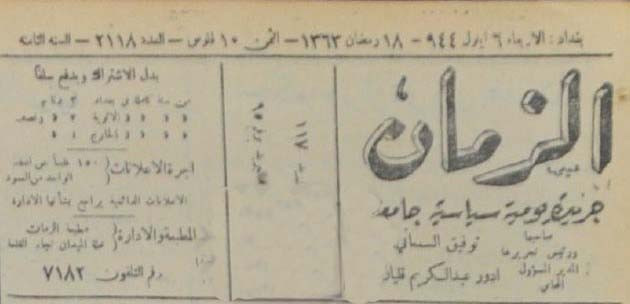 بغداد : الاربعاء ٦ ايلول ٩٤٤ - ١٨ رمضان ١٣٦٣ - الثمن ١٠ فلوس - العدد ٢١١٨ - السنة الثامنة
الزمان
جريدة يومية سياسية جامعة
صاحبها
ورئيس تحريرها
توفيق السمعاني
المدير المسؤول
المحامي
ادور عبدالكريم قليان
١١٧
٦٥
بدل الاشتراك ويدفع سلفاً
اجرة الاعلانات
١٥٠ فلساً عن
الواحد من العمود
الاعلانات الدائمية يراجع بشأنها الادارة
المطبعة والادارة
مطبعة الزمان
رقم التلفون ٧١٨٢